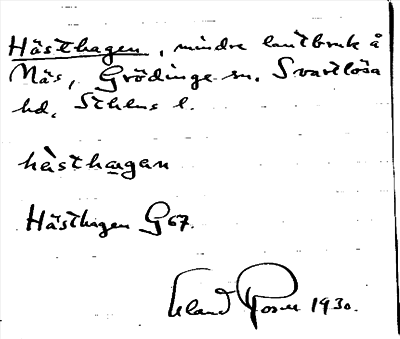 Hästhagen, mindre lantbruk å
Näs, Grödinge sn. Svartlösa
hd, Sthlms l.
hästhagan
Hästhagen G 67.
Erland Rosell 1930.